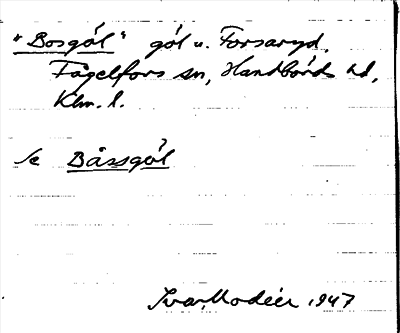 "Bosgöl" göl u. Forsaryd,
Fågelfors sn, Handbörds hd,
Klm. l.
se Båssgöl
Ivar Modéer 1947